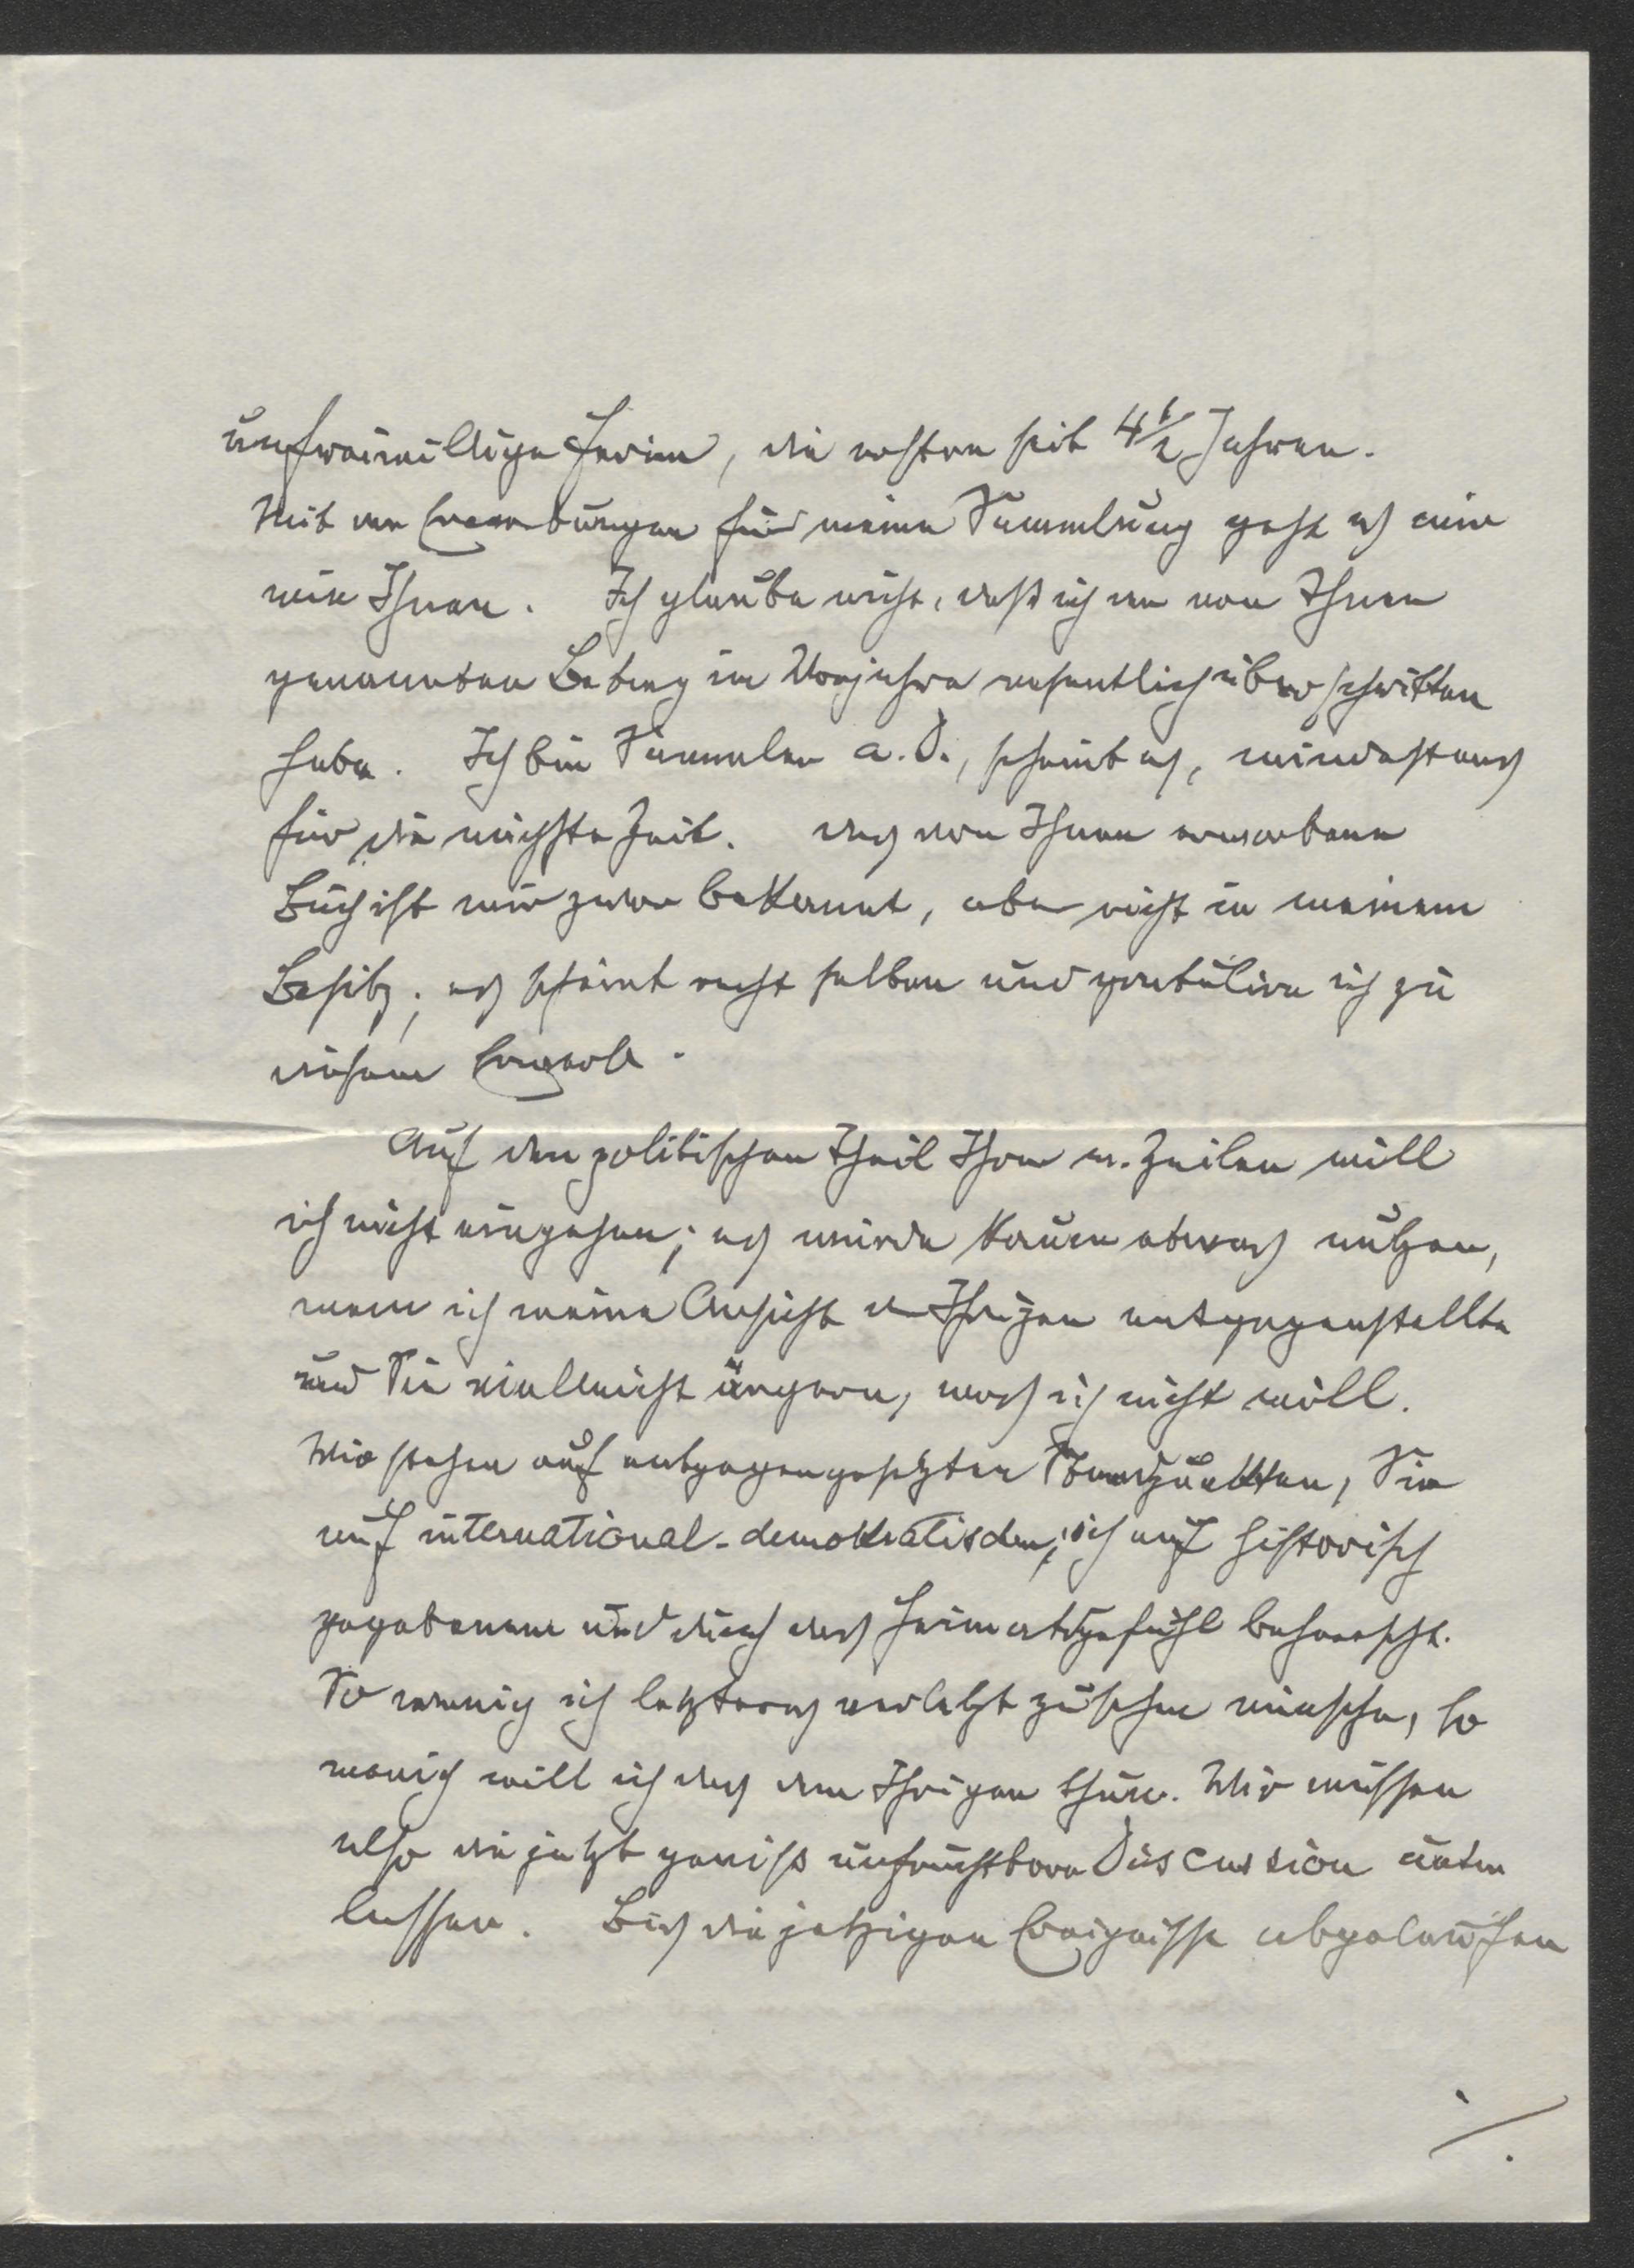 unfreiwillige Ferien, die ersten seit 4½ Jahren.
Mit den Erwerbungen für meine Sammlung geht es mir
wie Ihnen. Ich glaube nicht, daß ich den von Ihnen
genannten Betrag im Vorjahre wesentlich überschritten
habe. Ich bin Sammler a. D., scheint es, mindestens
für die nächste Zeit. Das von Ihnen erworbene
Buch ist mir zwar bekannt, aber nicht in meinem
Besitz; es scheint recht selten und gratulire ich zu
diesem Erwerb.
Auf den politischen Theil Ihrer w. Zeilen will
ich nicht eingehen; es würde kaum etwas nützen,
wenn ich meine Ansicht der Ihrigen entgegenstellte
und Sie vielleicht ärgern, was ich nicht will.
Wir stehen auf entgegengesetzten Standpunkten, Sie
auf international-demokratischem, ich auf historisch
gegebenem und durch das Heimatsgefühl beherrscht.
So wenig ich letzteres verletzt zu sehen wünsche, so
wenig will ich das dem Ihrigen thun. Wir müssen
also die jetzt gewiss unfruchtbare Discussion
lassen. Bis die jetzigen Ereignisse abgelaufen
./.